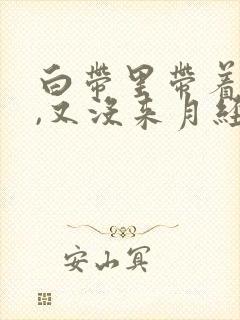 白带里带着
,又没来月经
安山冥